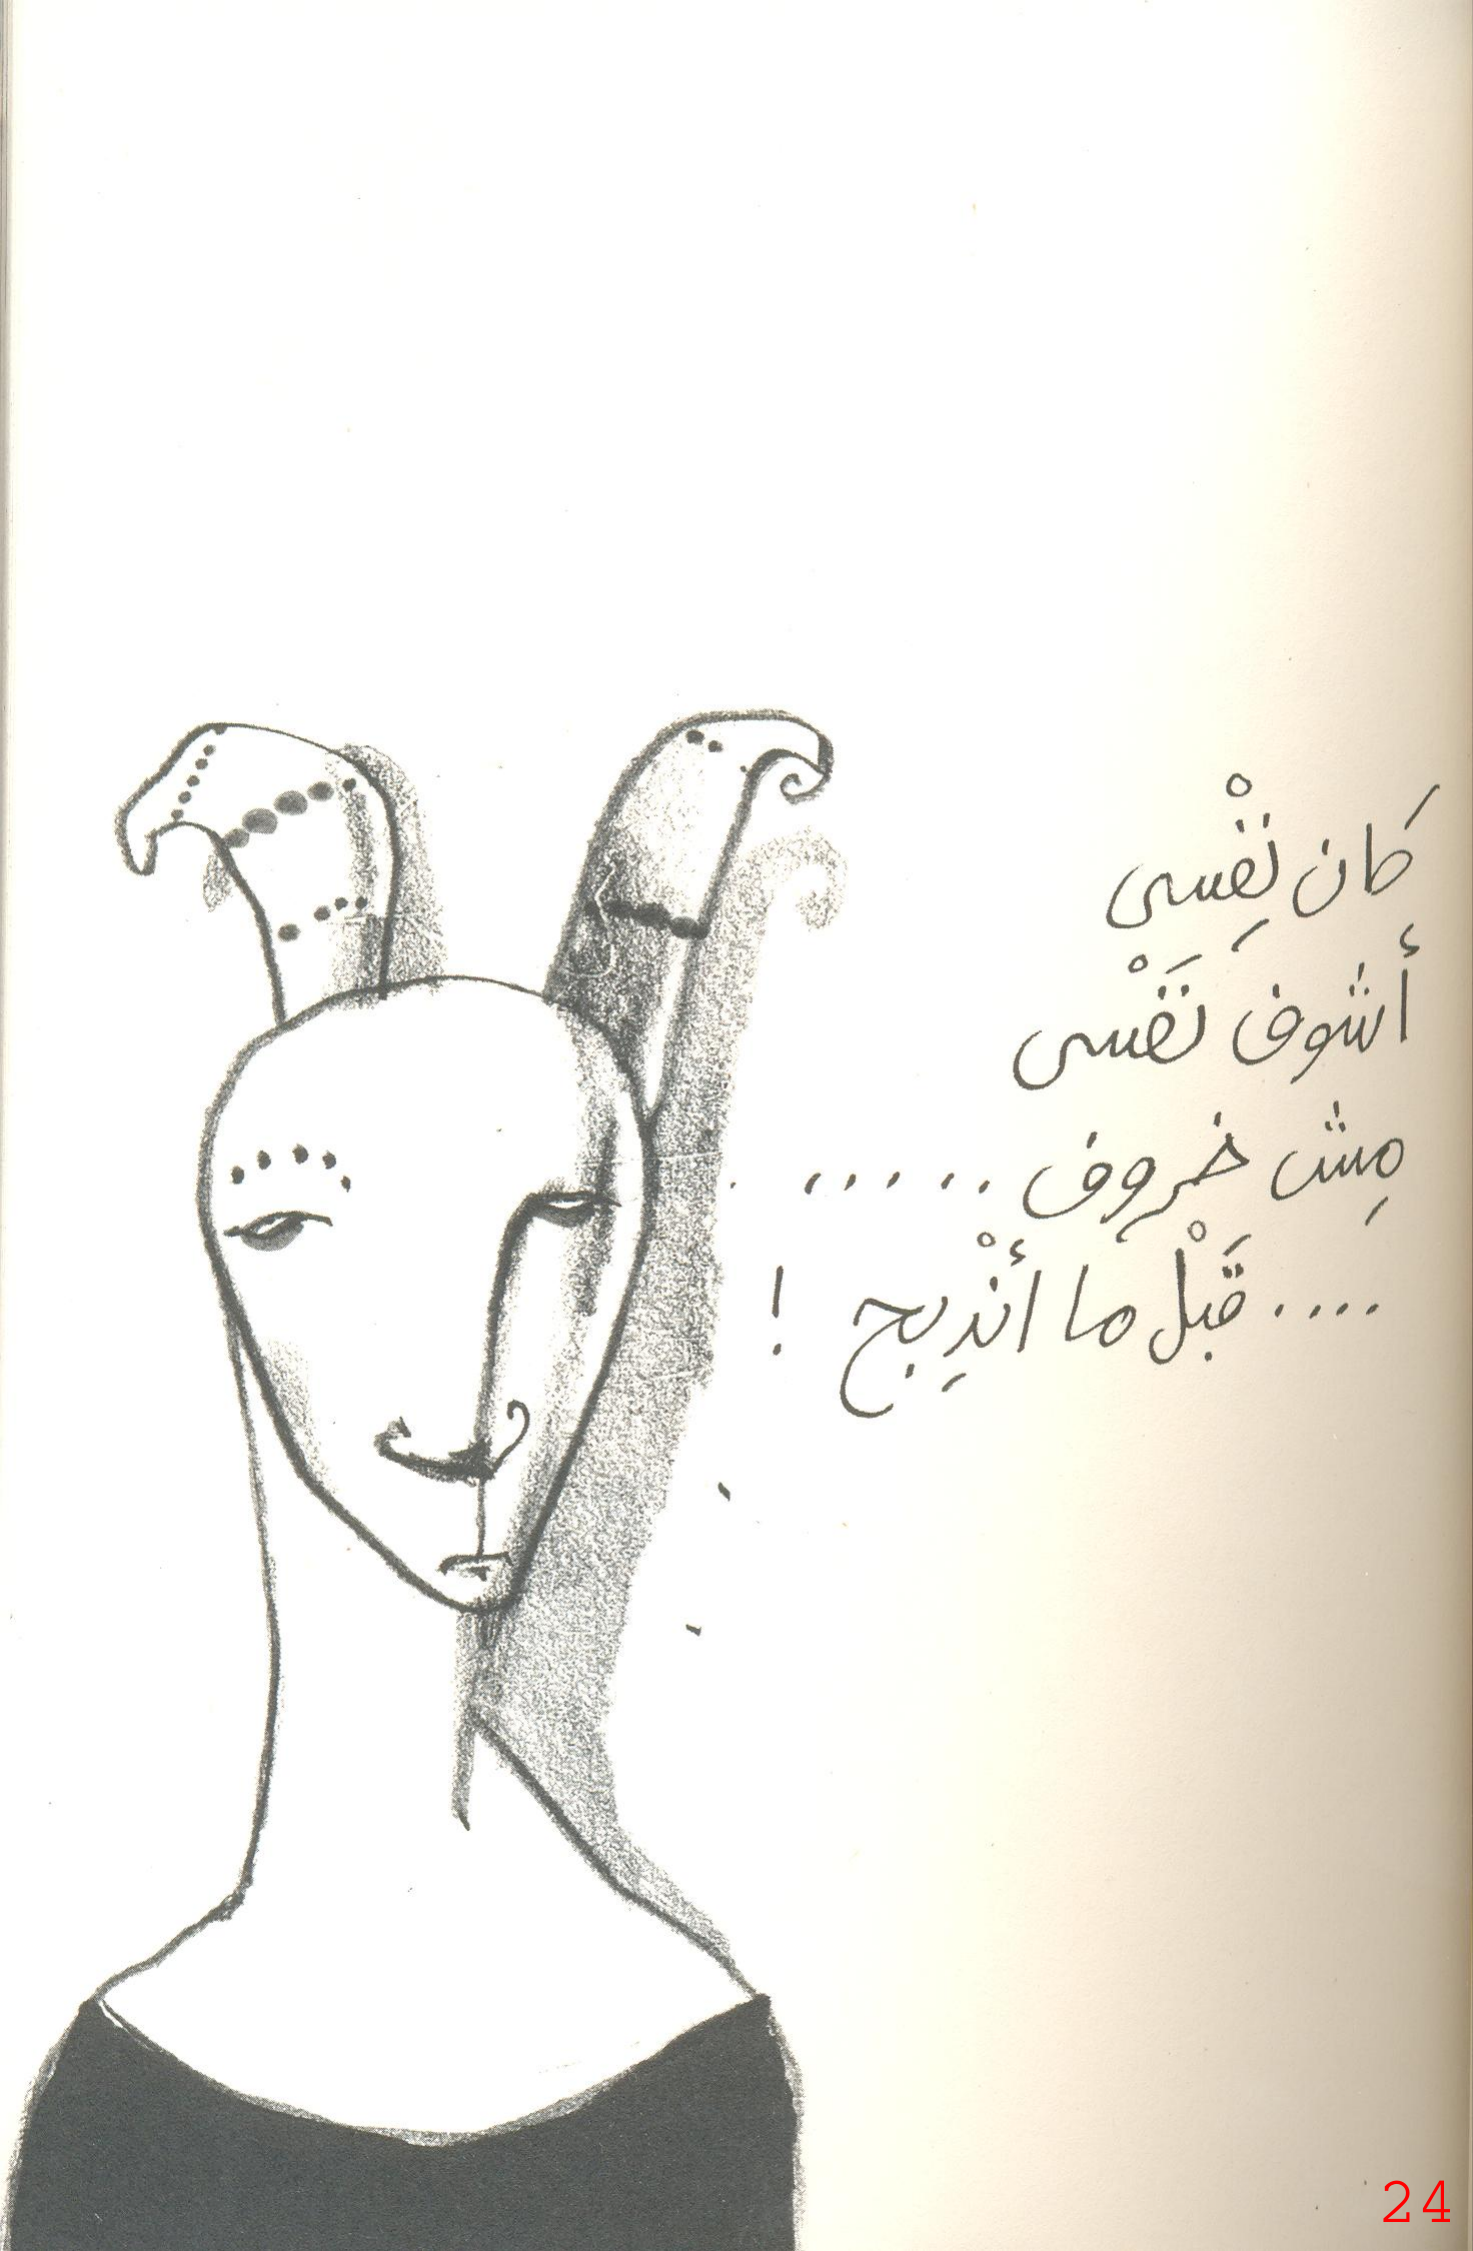 كَان نِفْسى
أشوف نَفْسى
مِش خروف ......
.... قَبْل ما أنْدِبح !
24